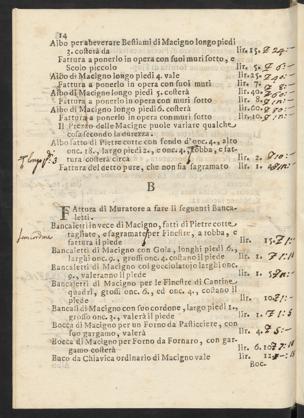 14
Albo per abeverare Bestiami di Macigno longo piedi
3. costerà da lir. 15.
Fattura a ponerlo in opera con suoi muri sotto, e
Scolo piccolo lir. 5.
Albo di Macigno longo piedi 4. vale lir. 25.
Fattura a ponerlo in opera con suoi muri lir. 7.
Albo di Macigno longo piedi 5. costerà lir. 40.
Fattura a ponerlo in opera con muri sotto lir. 8.
Albo di Macigno longo piedi 6. costerà lir. 60.
Fattura a ponerlo in opera con muri sotto lir. 10.
Il Prezzo delle Macigne puole variare qualche
cosa secondo la durezza.
Albo fatto di Pietre cotte con fondo d'onc. 4., alto
onc. 18., largo piedi 2., e onc. 4., robba, e fat-
tura costerà circa lir. 2.
Fattura del detto pure, che non sia sagramato lir. 1.
B
Fattura di Muratore a fare li seguenti Banca-
letti.
Bancaletti invece di Macigno, fatti di Pietre cotte
tagliate, e sagramate per Finestre, a robba, e
fattura il piede lir. 15.
Bancaletti di Macigno con Gola, longhi piedi 6.,
larghi onc. 9., grossi onc. 4. costano il piede lir. 1.
Bancaletti di Macigno col gocciolatojo larghi onc.
9., valeranno il piede lir. 1.
Bancaletti di Macigno per le Finestre di Cantine
quadri, grossi onc. 6., ed onc. 4., costano il
piede 10.
Bancali di Macigno con suo cordone, largo piedi 1.,
grosso onc. 3., valerà il piede lir. 1.
Bocca di Macigno per un Forno da Pasticciere, con
suo gargamo, valerà lir. 4.
Bocca di Macigno per Forno da Fornaro, con gar-
gamo costerà lir. 6. 10
Buco da Chiavica ordinario di Macigno vale lir.
Boc.